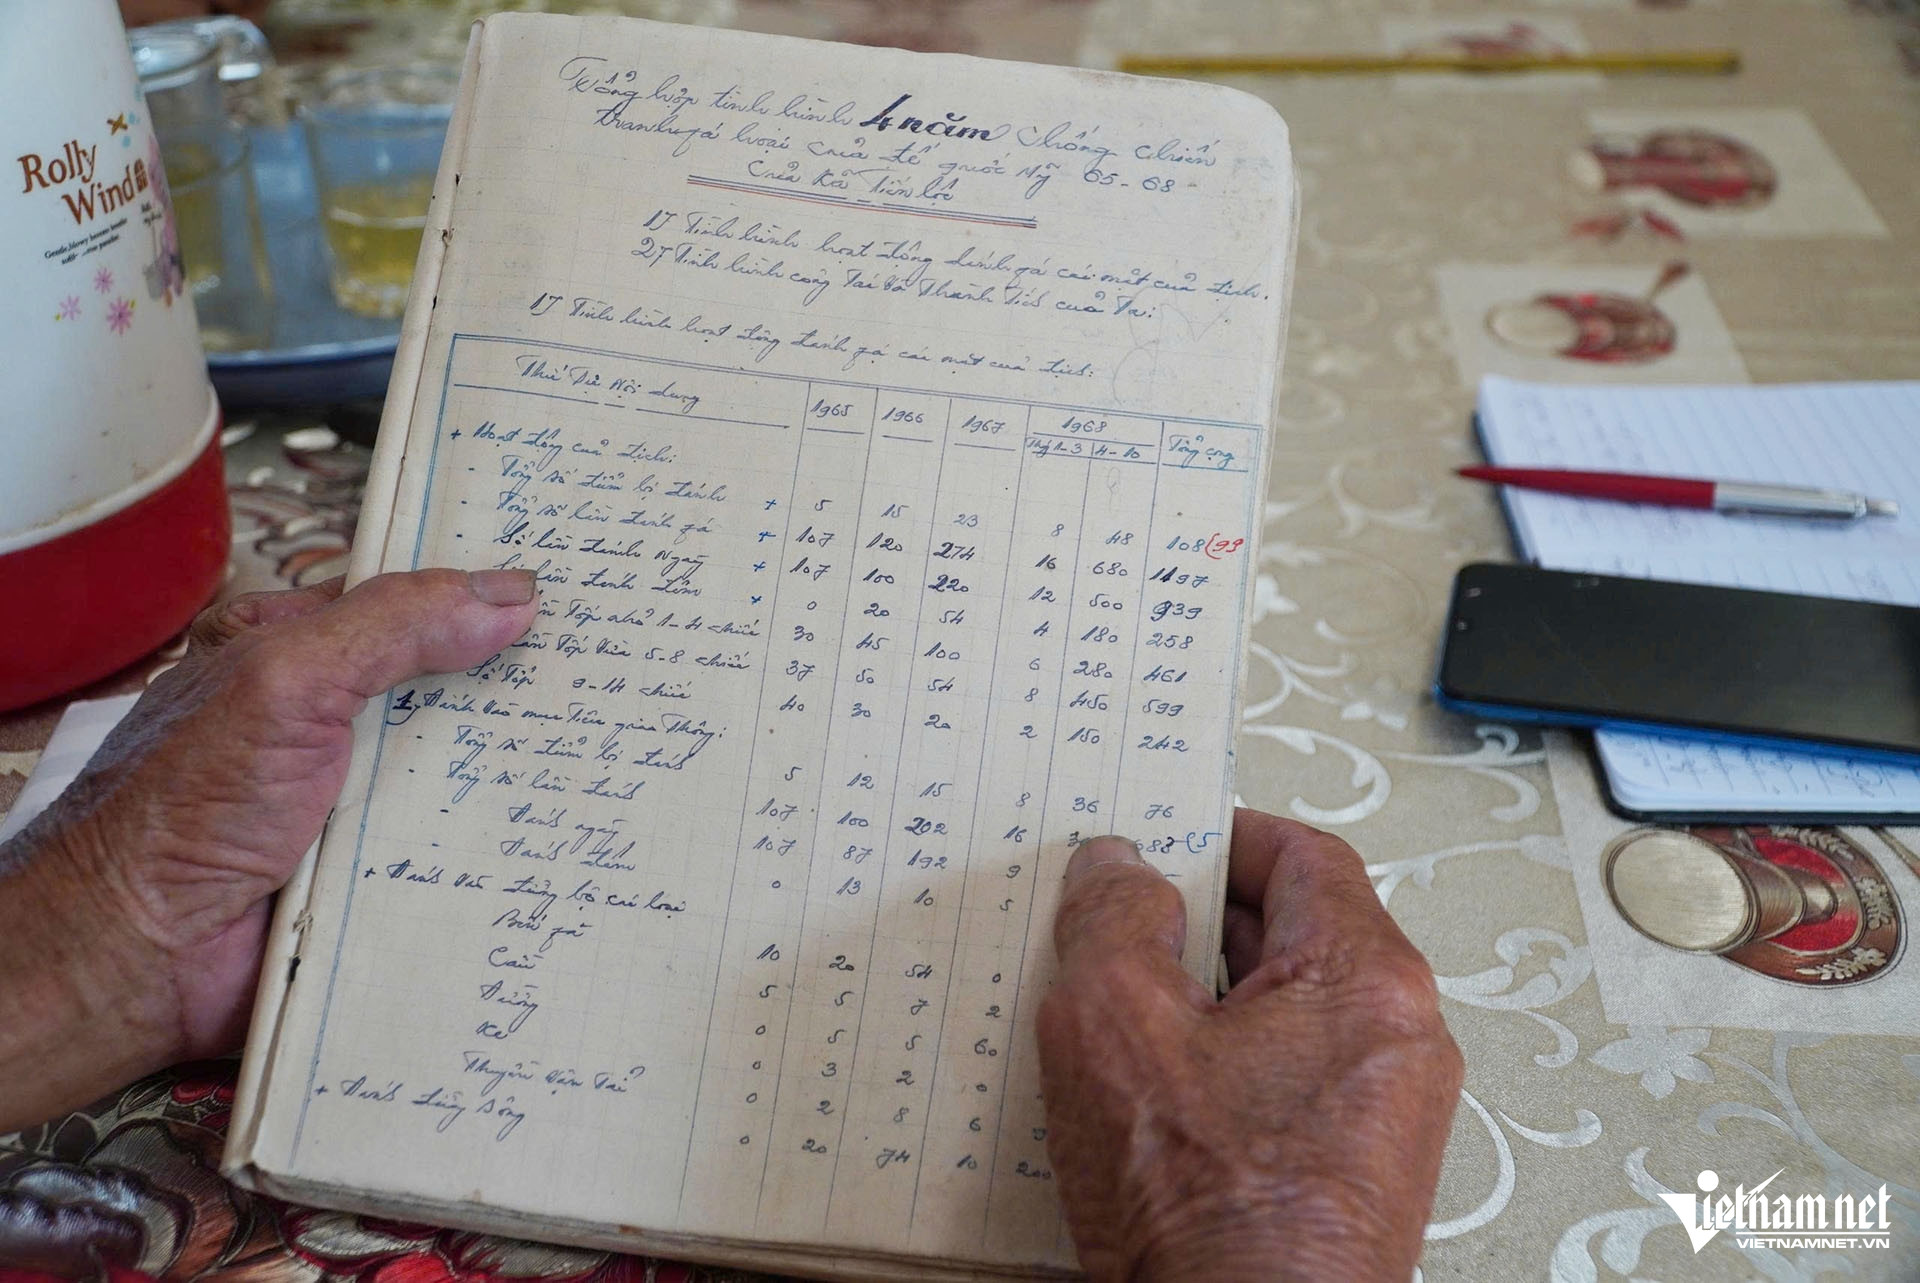 Rolly
Wind
Tổng hợp tình hình 4 năm chống chiến
tranh phá hoại của đế quốc Mỹ 65-68
Của Xã Tiến Lộc
1) Tình hình hoạt động đánh phá các mặt của địch.
2) Tình hình công tác và thành tích của ta:
1) Tình hình hoạt động đánh phá các mặt của địch:
Thứ tự Nội dung 1965 1966 1967 1968 Tổng cộng
Thg 1-3 4-10
+ Hoạt động của địch:
- Tổng số điểm bị đánh + 5 15 23 8 48 108 (99
- Tổng số lần đánh phá + 107 120 274 16 680 1197
- Số lần đánh ngày + 107 100 220 12 500 939
Số lần đánh đêm + 0 20 54 4 180 258
Tốp nhỏ 1-4 chiếc 30 45 100 6 280 461
lần Tốp vừa 5-8 chiếc 37 50 54 8 450 599
Số Tốp 9-14 chiếc 40 30 20 2 150 242
1) Đánh vào mục tiêu giao thông:
- Tổng số điểm bị đánh 5 12 15 8 36 76
- Tổng số lần đánh 107 100 202 16
- Đánh ngày 107 87 192 9
- Đánh đêm 0 13 10 5
+ Đánh vào đường bộ các loại
Bến phà 10 20 54 0
Cầu 5 5 7 2
Đường 0 5 5 60
Kè 0 3 2 0
Thuyền vận tải 0 2 8 6
+ Đánh đường sông 0 20 74 10 200
Vietnamnet
VIETNAMNET.VN